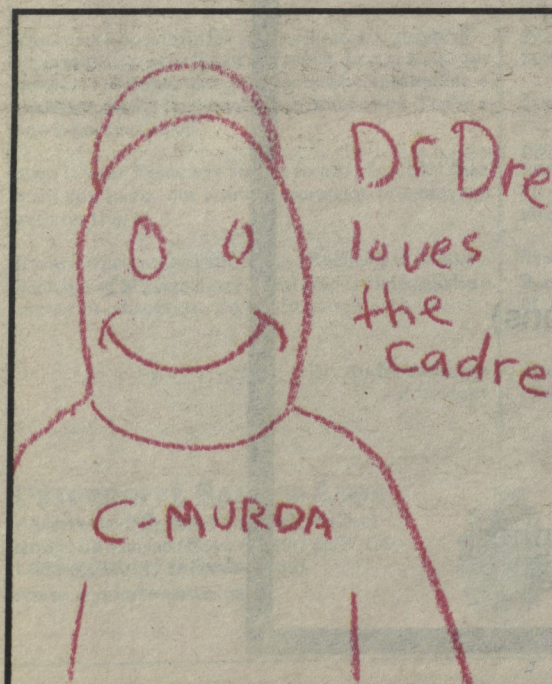 Dr Dre
loves
the
cadre
C-MURDA